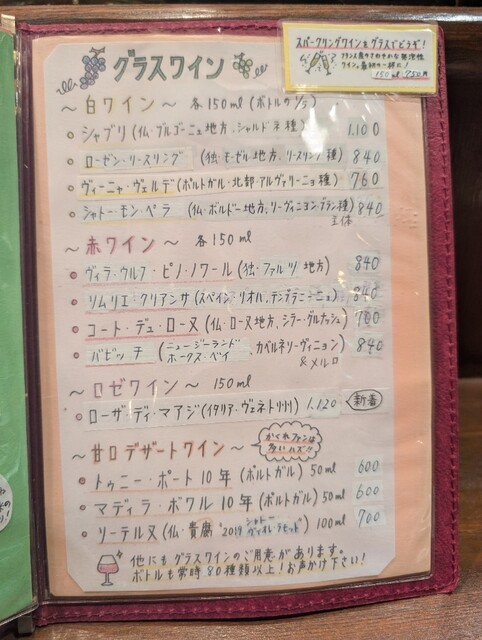 スパークリングワインもグラスでどうぞ!
ワイン、最初の一杯に!
150ml 750円
グラスワイン
～白ワイン～ 各150ml (ボトルの1/5)
シャブリ (仏・ブルゴーニュ地方、シャルドネ種) 1,100
ローゼン・リースリング (独・モーゼル地方、リースリング種) 840
ヴィーニャ・ヴェルデ (ポルトガル・北部・アルヴァリーニョ種) 760
シャトー・モン・ペラ (仏・ボルドー地方、ソーヴィニヨン・ブラン種) 840
主体
～赤ワイン～ 各150ml
ヴィラ・ウルフ・ピノ・ノワール (独・ファルツ地方) 840
リムリエ・クリアンサ (スペイン・リオハ、テンプラニーニョ) 840
コート・デュ・ローヌ (仏・ローヌ地方、シラー・グルナッシュ)
バビッチ (ニュージーランド ホークス・ベイ、カベルネソーヴィニョン 840
&メルロ
～ロゼワイン～ 150ml
ローザ・ディ・マアジ (イタリア・ヴェネト州) 1,120 新着
～甘口デザートワイン～
かくれファンは
多いハズ!!
トゥニー・ポート10年 (ポルトガル) 50ml 600
マディラ・ボワル10年 (ポルトガル) 50ml 600
ソーテルヌ (仏・貴腐 '2019 シャトー ヴィオレ・ラモット) 100ml 700
他にもグラスワインのご用意があります。
ボトルも常時80種類以上!お声かけ下さい!